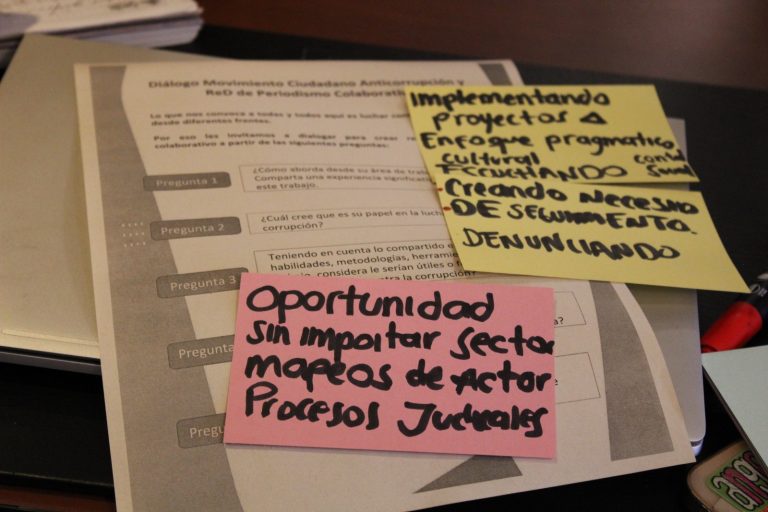 Diálogo Movimiento Ciudadano Anticorrupción y
ReD de Periodismo Colaborati
Lo que nos convoca a todas y todos aquí es luchar con
desde diferentes frentes.
Por eso les invitamos a dialogar para crear re
colaborativo a partir de las siguientes preguntas:
Pregunta 1
¿Cómo aborda desde su área de traba
Comparta una experiencia significati
este trabajo.
Pregunta 2
¿Cuál cree que es su papel en la luch
corrupción?
Pregunta 3
Teniendo en cuenta lo compartido e
habilidades, metodologías, herramie
considera le serían útiles o
tra la corrupción?
Pregunta
a?
Pregu
Implementando
proyectos Δ
Enfoque pragmatico
cultural
Creando necesid
DE SEGUIMIENTO.
DENUNCIANDO
Oportunidad
sin importar Sector
mapeos de Actor
Procesos Judiciales